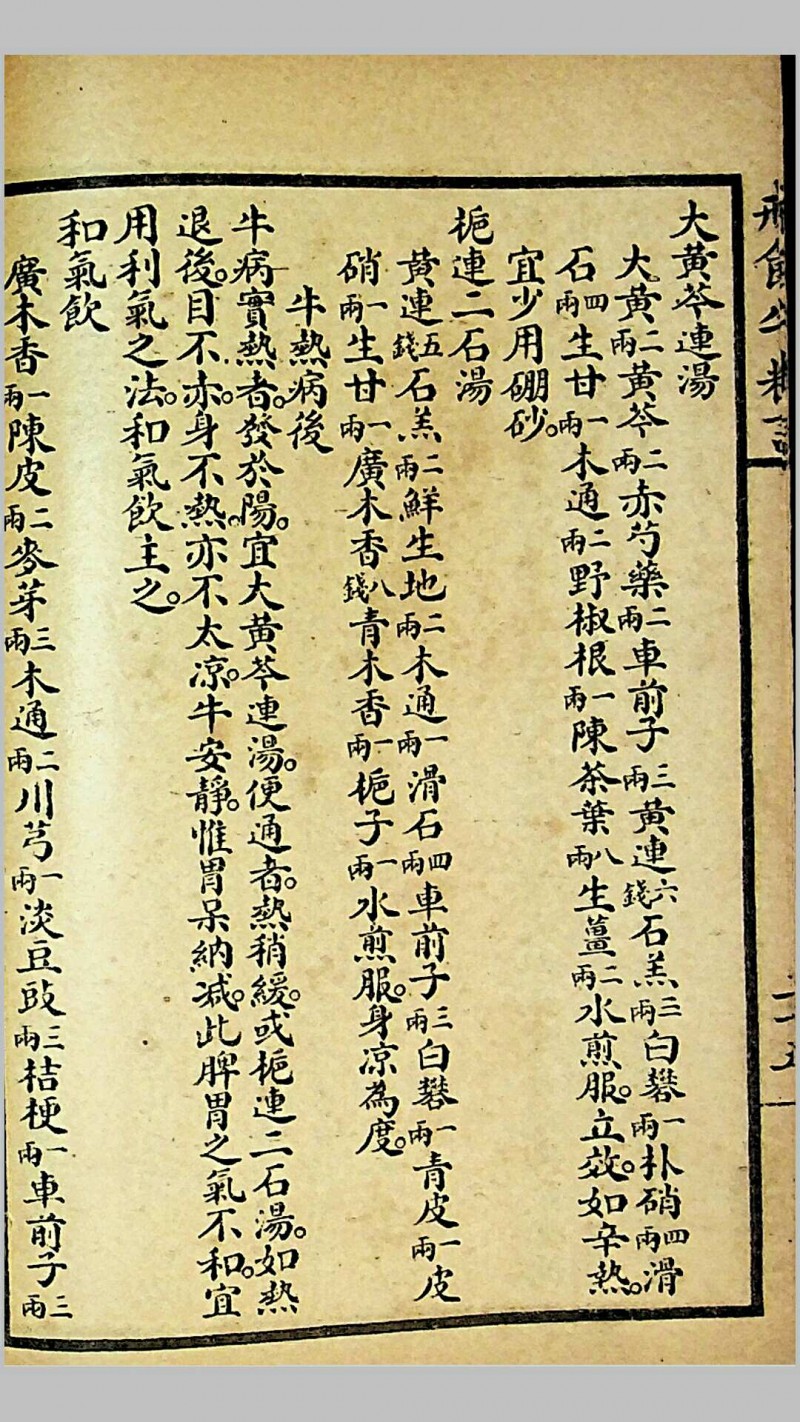 大黄芩連湯
大黄二兩黄芩二兩赤芍藥二兩車前子三兩黄連六錢石羔三兩白礬一兩朴硝四兩滑
石四兩生甘一兩木通二兩野椒根一兩陳茶葉八兩生薑二兩水煎服。立效。如辛熱。
宜少用硼砂。
梔連二石湯
黄連五錢石羔二兩鮮生地二兩木通一兩滑石四兩車前子三兩白礬一兩青皮一兩皮
硝一兩生甘一兩廣木香八錢青木香一兩梔子一兩水煎服。身凉為度。
牛熱病後
牛病實熱者。發於陽。宜大黄芩連湯。便通者。熱稍緩。或梔連二石湯。如熱
退後。目不赤。身不熱。亦不太凉。牛安靜。惟胃呆納减。此脾胃之氣不和。宜
用利氣之法。和氣飲主之。
和氣飲
廣木香一兩陳皮二兩麥芽三兩木通二兩川芎一兩淡豆豉三兩桔梗一兩車前子三兩